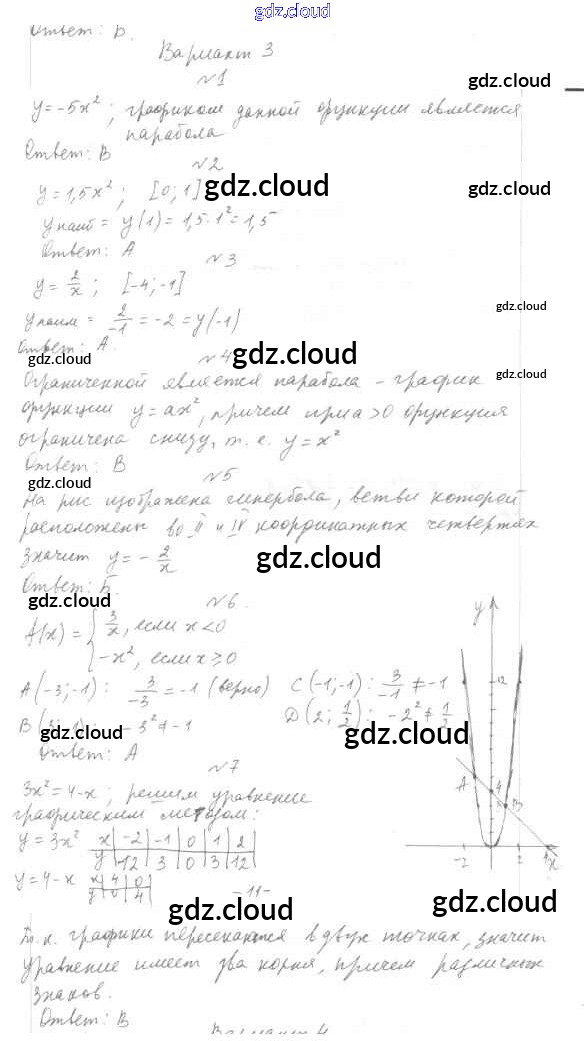 gdz.cloud
Ответ: Б.
Вариант 3
№1
gdz.cloud
y = -5x²; графиком данной функции является
парабола
Ответ: В
№2
y = 1,5x²; [0; 1] gdz.cloud gdz.cloud
y наиб = y(1) = 1,5·1² = 1,5
Ответ: А
№3
y = 2/x; [-4; -1]
gdz.cloud
y наим = 2/-1 = -2 = y(-1)
Ответ: А.
gdz.cloud №4 gdz.cloud gdz.cloud
Ограниченной является парабола - график
функции y = ax², причем при a>0 функция
ограничена снизу, т.е. y = x²
Ответ: В
gdz.cloud №5
На рис изображена гипербола, ветви которой
расположены во II и IV координатных четвертях
значит y = -2/x gdz.cloud
Ответ: Б.
gdz.cloud №6.
A(x) = { 3/x, если x<0
-x², если x⩾0
A(-3; -1): 3/-3 = -1 (верно) C(-1; -1): 3/-1 ≠ -1
B(3; -1): -3² ≠ -1 D(2; 1/2): -2² ≠ 1/2
gdz.cloud gdz.cloud
Ответ: А
№7
3x² = 4-x; решим уравнение
графическим методом:
y = 3x² x | -2 | -1 | 0 | 1 | 2
y | -12 | 3 | 0 | 3 | 12
y = 4-x x | 4 | 0
y | 0 | 4
y
12
A
4
B
-2 2 4 x
-11-
gdz.cloud gdz.cloud
Т.к. графики пересекаются в двух точках, значит
уравнение имеет два корня, причем различных
знаков.
Ответ: В
Вариант 4